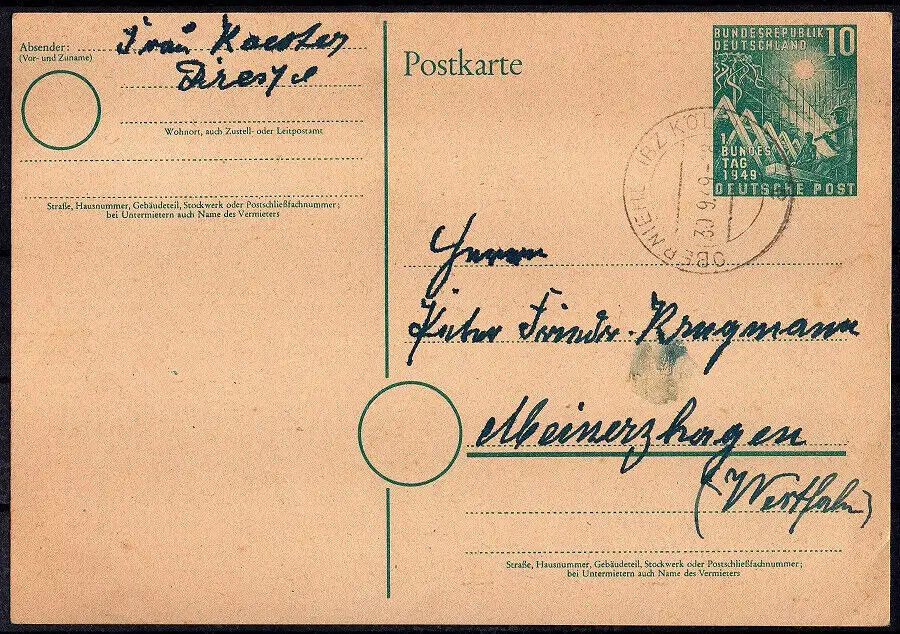 Absender: Frau Koester
(Vor- und Zuname)
Wohnort, auch Zustell- oder Leitpostamt
Straße, Hausnummer, Gebäudeteil, Stockwerk oder Postschließfachnummer;
bei Untermietern auch Name des Vermieters
Postkarte
BUNDESREPUBLIK 10
DEUTSCHLAND
1.
BUNDES
TAG
1949
DEUTSCHE POST
30.9.49
Herrn
Peter Friedr. Krugmann
Meinerzhagen
(Westfalen)
Straße, Hausnummer, Gebäudeteil, Stockwerk oder Postschließfachnummer;
bei Untermietern auch Name des Vermieters